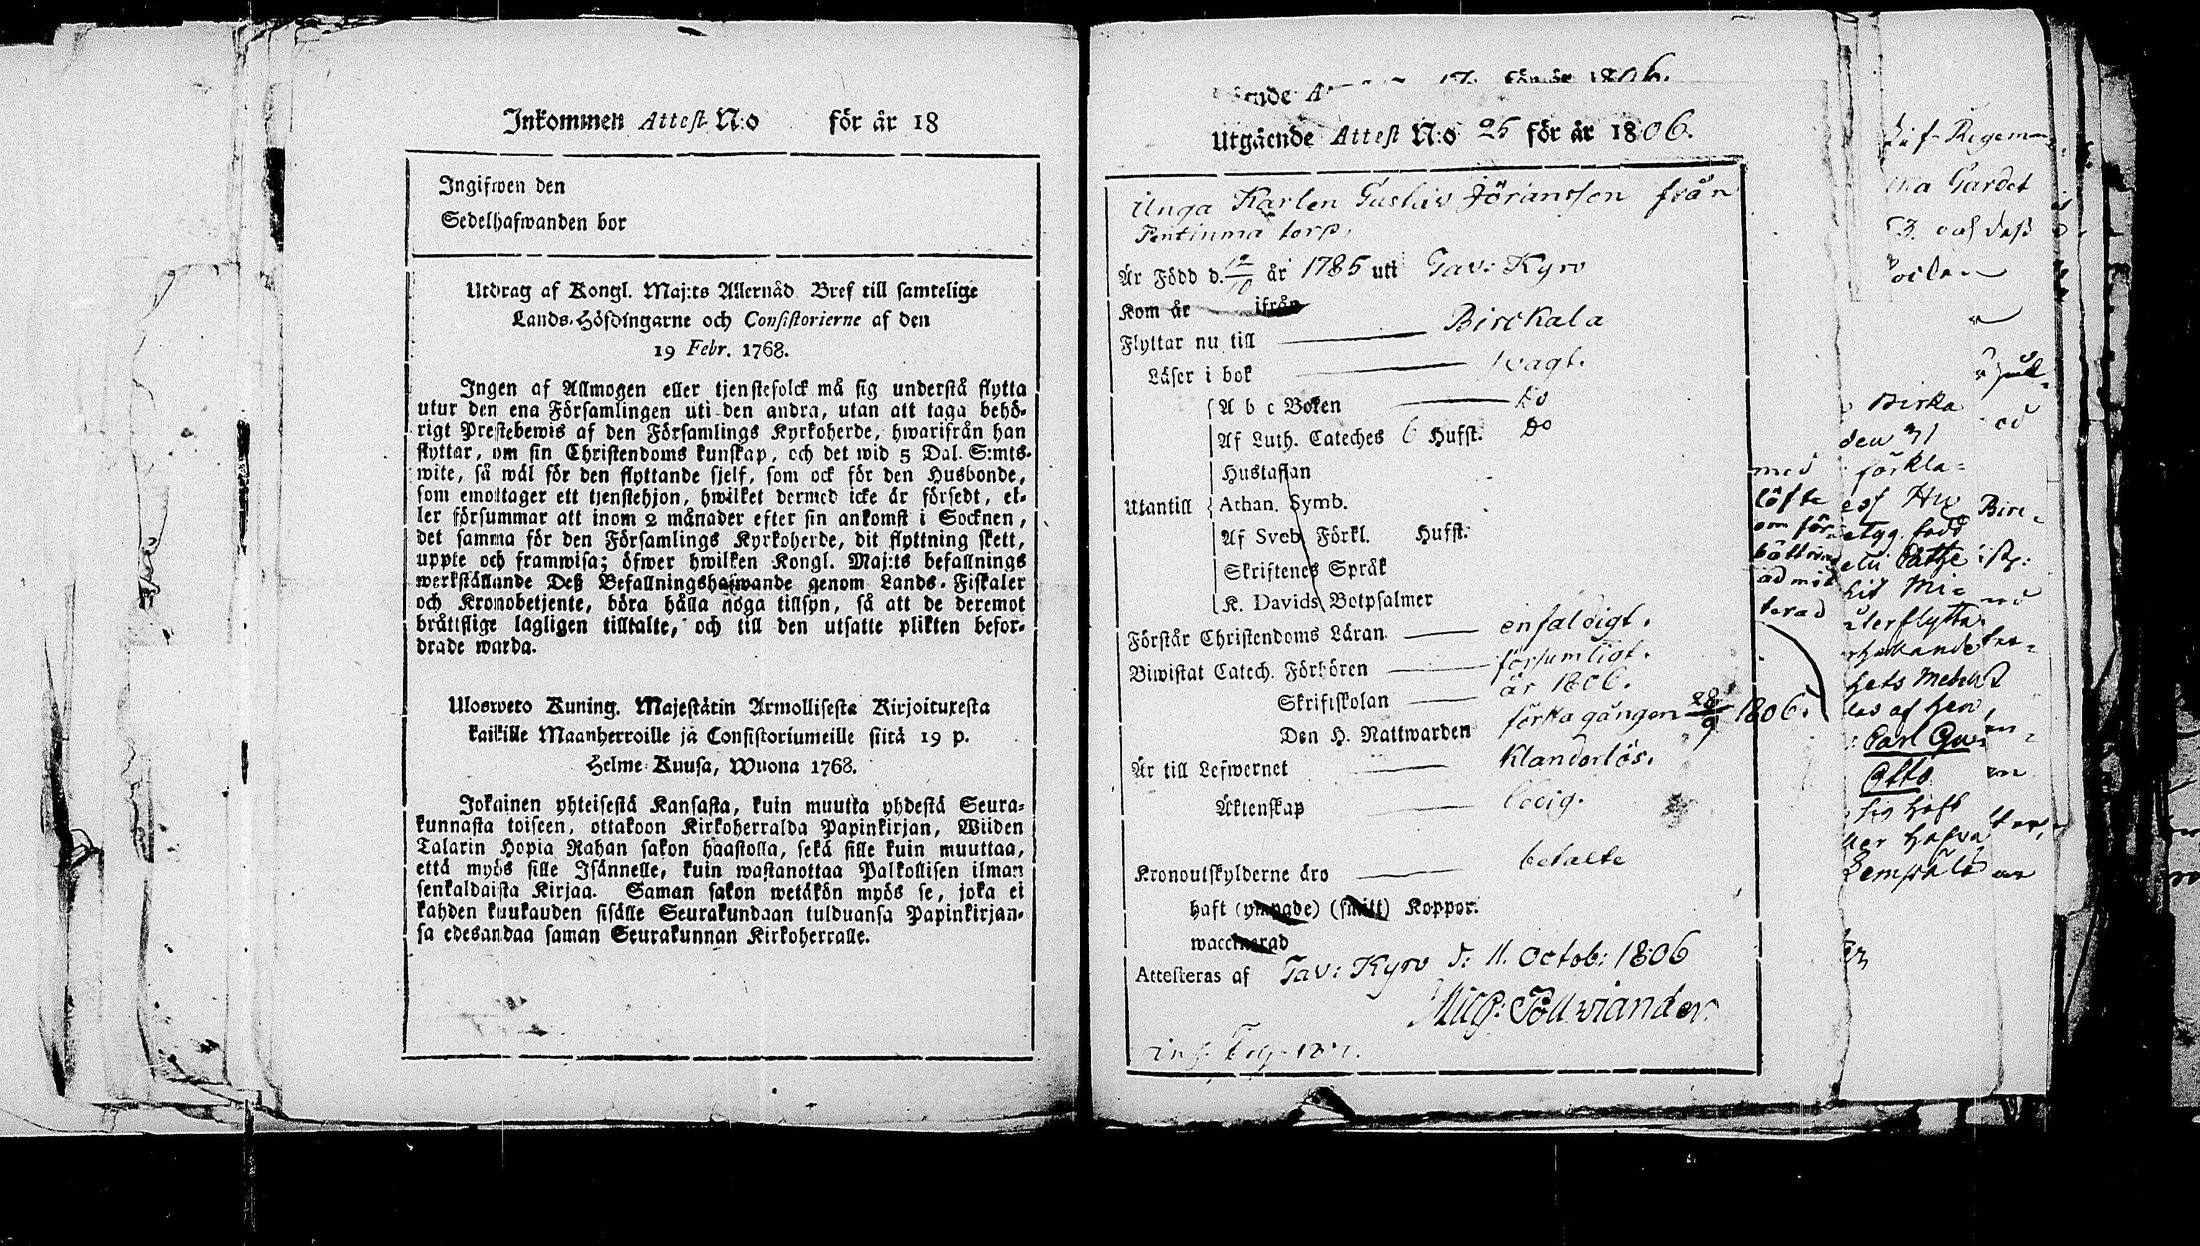 Inkommen Attest N:o för år 18
Ingifwen den
Sedelhafwanden bor
Utdrag af Kongl. Maj:ts Allernåd. Bref till samtelige
Lands-Höfdingarne och Consistorierne af den
19 Febr. 1768.
Ingen af Allmogen eller tjenstefolck må sig understå flytta
utur den ena Församlingen uti den andra, utan att taga behö-
rigt Prestebewis af den Församlings Kyrkoherde, hwarifrån han
flyttar, om sin Christendoms kunskap, och det wid 5 Dal. S:mts-
wite, så wäl för den flyttande sjelf, som ock för den Husbonde,
som emottager ett tjenstehjon, hwilket dermed icke är försedt, el-
ler försummar att inom 2 månader efter sin ankomst i Socknen,
det samma för den Församlings Kyrkoherde, dit flyttning skett,
uppte och framwisa; öfwer hwilken Kongl. Maj:ts befallnings
werkställande Deß Befallningshafwande genom Lands-Fiskaler
och Kronobetjente, böra hålla noga tillsyn, så att de deremot
bråttslige lagligen tilltalte, och till den utsatte plikten befor-
drade warda.
Ulosweto Kuning. Majestätin Armollisesta Kirjoituxesta
kaikille Maanherroille ja Consistoriumeille siitä 19 p.
Helme-Kuusa, Wuona 1768.
Jokainen yhteisestä Kansasta, kuin muutta yhdestä Seura-
kunnasta toiseen, ottakoon Kirkoherralda Papinkirjan, Wiiden
Talarin Hopia Rahan sakon haastolla, sekä sille kuin muuttaa,
että myös sille Isännelle, kuin wastanottaa Palkollisen ilman
senkaldaista Kirjaa. Saman sakon wetäkön myös se, joka ei
kahden kuukauden sisälle Seurakundaan tulduansa Papinkirjan-
sa edesandaa saman Seurakunnan Kirkoherralle.
för år 1806.
Utgående Attest N:o 25 för år 1806.
Unga Karlen Gustav Jöransson från
Pentinma torp.
Är Född d. 12/10 år 1785 uti Tav: Kyro
Kom år ifrån
Flyttar nu till Birckala
Läser i bok svagt.
A b c Boken do
Af Luth. Cateches 6 Hufst. Do
Hustaflan
Utantill Athan. Symb.
Af Sveb. Förkl. Hufst.
Skriftenes Språk
K. Davids Botpsalmer
Förstår Christendoms Läran enfaldigt.
Biwistat Catech. Förhören försumligt.
Skriftskolan år 1806.
Den H. Nattwarden förka gången 28/9 1806.
Är till Lefwernet Klanderlös.
Äktenskap ledig.
Kronoutskylderne äro betalte
haft (ympade) (smitt) Koppor.
waccinerad
Attesteras af Tav: Kyro d: 11. Octob: 1806
med
löfte
om för-
bättring
admit
terad
Birka
den 31
förkla-
Mi-
återflytta
Carl Gu
Otto